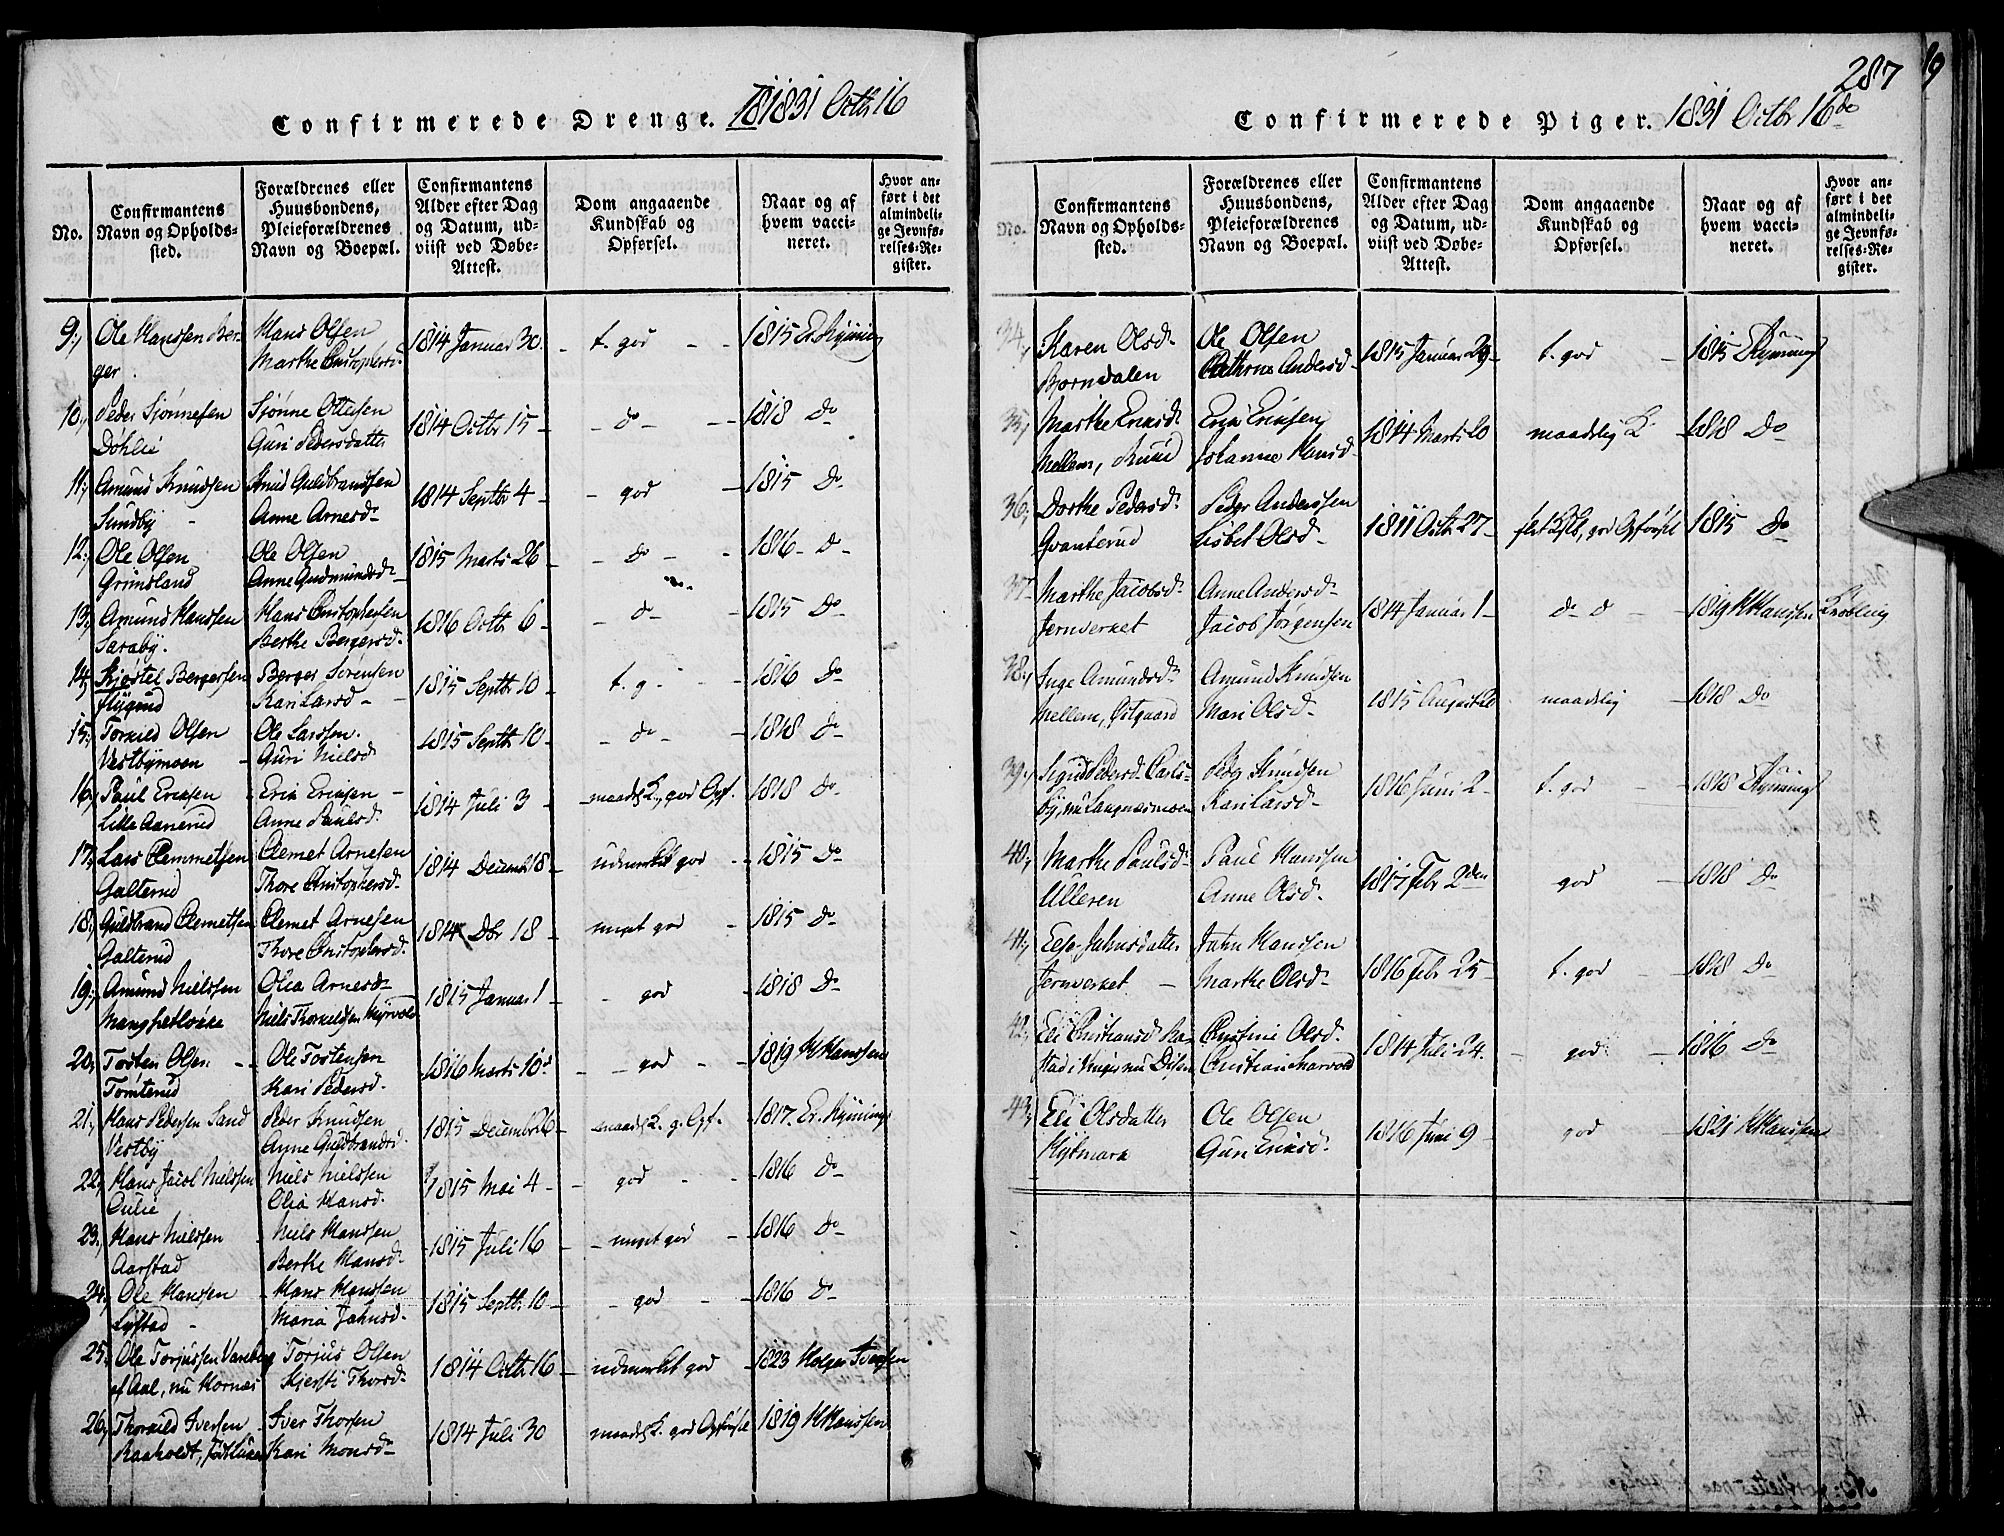 Confirmerede Drenge. 1831 Octbr 16
No.
Confirmantens Navn og Opholdssted.
Forældrenes eller Huusbondens, Pleieforældrenes Navn og Boepæl.
Confirmantens Alder efter Dag og Datum, udviist ved Døbe-Attest.
Dom angaaende Kundskab og Opførsel.
Naar og af hvem vaccineret.
Hvor anført i det almindelige Jevnførelses-Register.
9, Ole Hanssen Berger. Hans Olsen Marthe Christophersd. 1814 Januar 30. t. god 1815 Er. Kynning
10, Peder Sjønnesen Døhlie Sjønne Ottesen Guri Pedersdatter 1814 Octbr 15 do 1818 Do
11, Amund Knudsen Sundby Knud Guldbrandsen Anne Arnesd. 1814 Septbr 4 god 1815 Do
12, Ole Olsen Grimsland Ole Olsen Anne Gudmundsd. 1815 Marts 26 do 1816 Do
13, Amund Hanssen Saraby. Hans Christophersen Berthe Bergersd. 1816 Octbr 6 do 1815 Do
14, Kjøstel Bergersen Flygind Berger Sørensen Kari Larsd. 1815 Septbr 10 t. g. 1816 Do
15, Torkild Olsen Vestbymoen Ole Larssen. Guri Nielsd. 1815 Septbr 10 do 1818 Do
16, Paul Ericksen Lille Aanerud Erik Ericksen Anne Paulsd. 1814 Juli 3 maadl. K., god Opf. 1818 Do
17, Lars Clemmetsen Galterud Clemet Arnesen Thore Christophersd. 1814 Decembr 18 udmærket god 1815 Do
18, Guldbrand Clemetsen Galterud Clemet Arnesen Thore Christophersd. 1814 Dbr 18 meget god 1815 Do
19, Amund Nielssen Olia Arnesd. Niels Thorkeldsen Myrvold 1815 Januar 1 god 1818 Do
20, Tosten Olsen Tomterud Ole Tostensen Kari Pedersd. 1816 Marts 10 god 1819 H Hanssen
21, Hans Pedersen Sand Vestby Peder Knudsen Anne Guldbrandsd. 1815 Decembr 26 maadl. K. g. Opf. 1817. Er. Kynning
22, Hans Jacob Nielssen Niels Nielssen Olia Hansd. 1815 Mai 4 god 1816 Do
23, Hans Nielssen Aarstad Niels Hanssen Berthe Hansd. 1815 Juli 16 meget god 1816 Do
24, Ole Hanssen Lystad Hans Hanssen Maria Jahnsd. 1815 Septbr 10 god 1816 Do
25, Ole Torjussen af Aal, nu Hornæs Torjus Olsen Kjersti Thorsd. 1814 Octbr 16 udmærket god 1823 Holger Iversen
26, Thorkild Iversen Raaholdt, Iver Thorsen Kari Monsd. 1814 Juli 30 maadl. K. god Opførsel 1819 H Hanssen
287
Confirmerede Piger. 1831 Octbr 16de
No.
Confirmantens Navn og Opholdssted.
Forældrenes eller Huusbondens, Pleieforældrenes Navn og Boepæl.
Confirmantens Alder efter Dag og Datum, udviist ved Døbe-Attest.
Dom angaaende Kundskab og Opførsel.
Naar og af hvem vaccineret.
Hvor anført i det almindelige Jevnførelses-Register.
34, Karen Olsd. Bjørndalen Ole Olsen Cathrne Andersd. 1815 Januar 29 t. god 1815 Kynning
35, Marthe Ericksd. Mellem, Ruud Erik Ericksen Johanne Hansd. 1814 Marts 20 maadelig K. 1818 Do
36, Dorthe Pedersd. Gvanterud Peder Anderssen Lisbet Olsd. 1811 Octbr 27 god Opførsel 1815 Do
37 Marthe Jacobsd. Jernverket Anne Andersd. Jacob Jørgensen 1814 Januar 1 do 1819 H Hanssen
38, Inge Amundsd. Mellem, Østgaard Amund Knudsen Mari Olsd. 1815 August 20 maadelig 1818 Do
39, Sigrid Pedersd. Carlsby, nu Langnæsmoen Peder Knudsen Kari Larsd. 1816 Juni 2 t. god 1818 Kynning
40, Marthe Paulsd. Ulleren Paul Hanssen Anne Olsd. 1817 Febr 2den god 1818 Do
41, Jahnsdatter Jernverket Jahn Hanssen Marthe Olsd. 1816 Febr 25 t. god 1818 Do
42, Eli Christiansd. Christine Olsd. Christian Skarvold 1814 Juli 24. god 1816 Do
43, Eli Olsdatter Ole Olsen Guri Ericksd. 1816 Juni 9 god 1821 H Hanssen